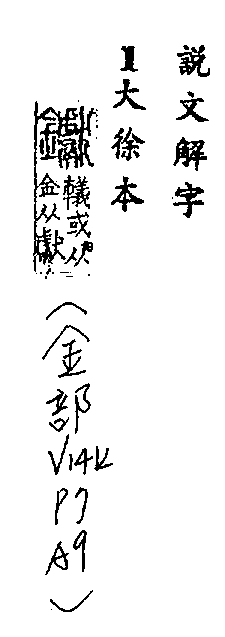 説文解字
1大徐本
钀轙或从
金从獻
(金部V14K P7 A9)